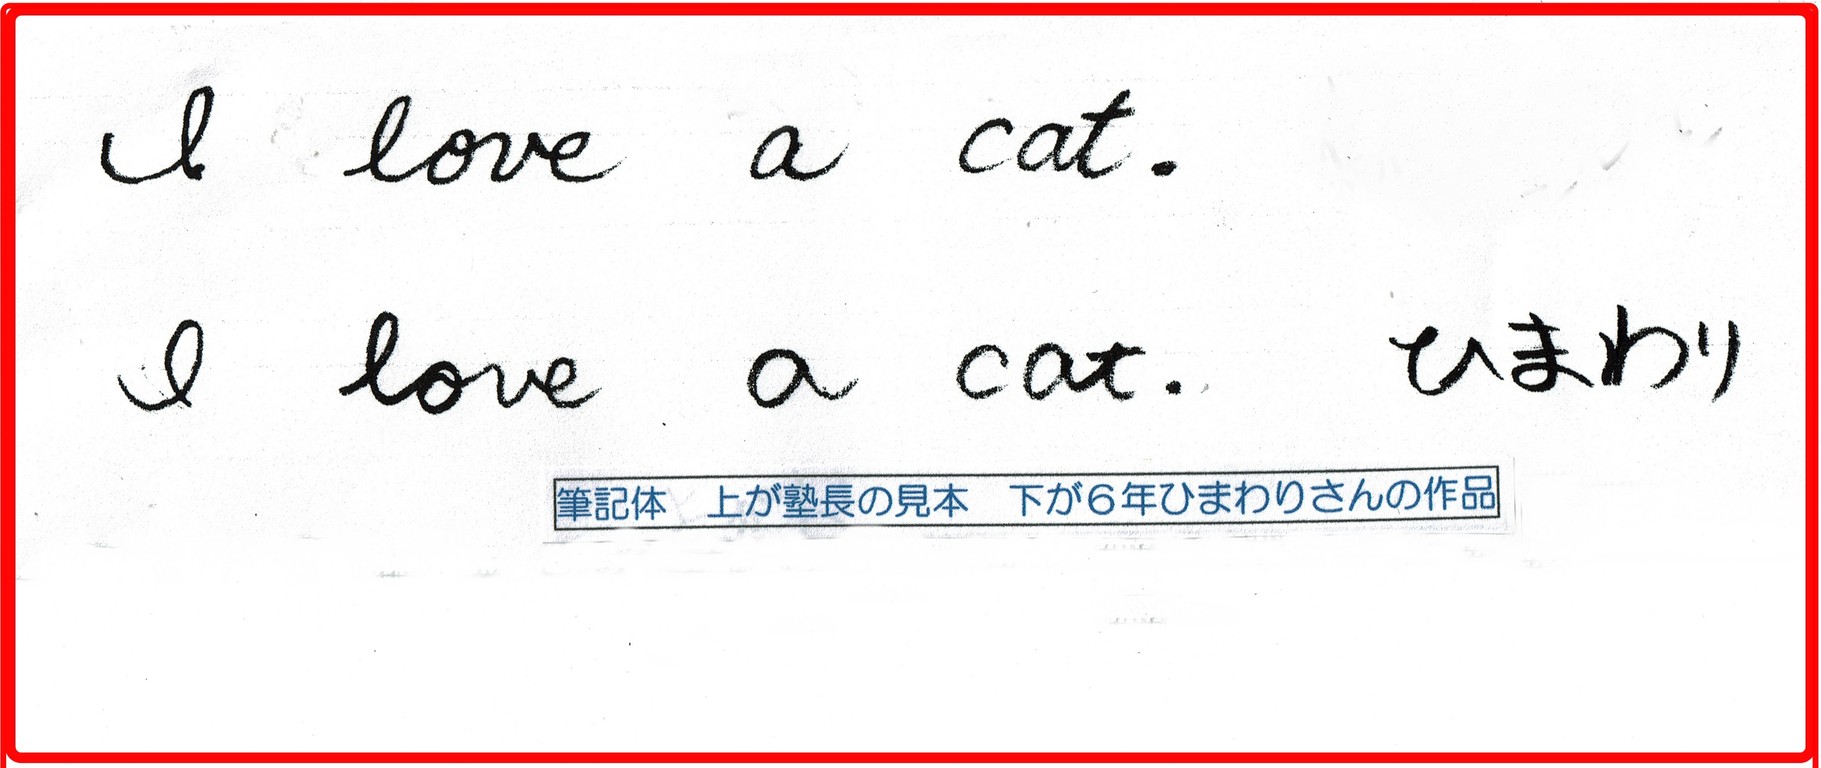 I love a cat.
I love a cat. ひまわり
筆記体 上が塾長の見本 下が6年ひまわりさんの作品